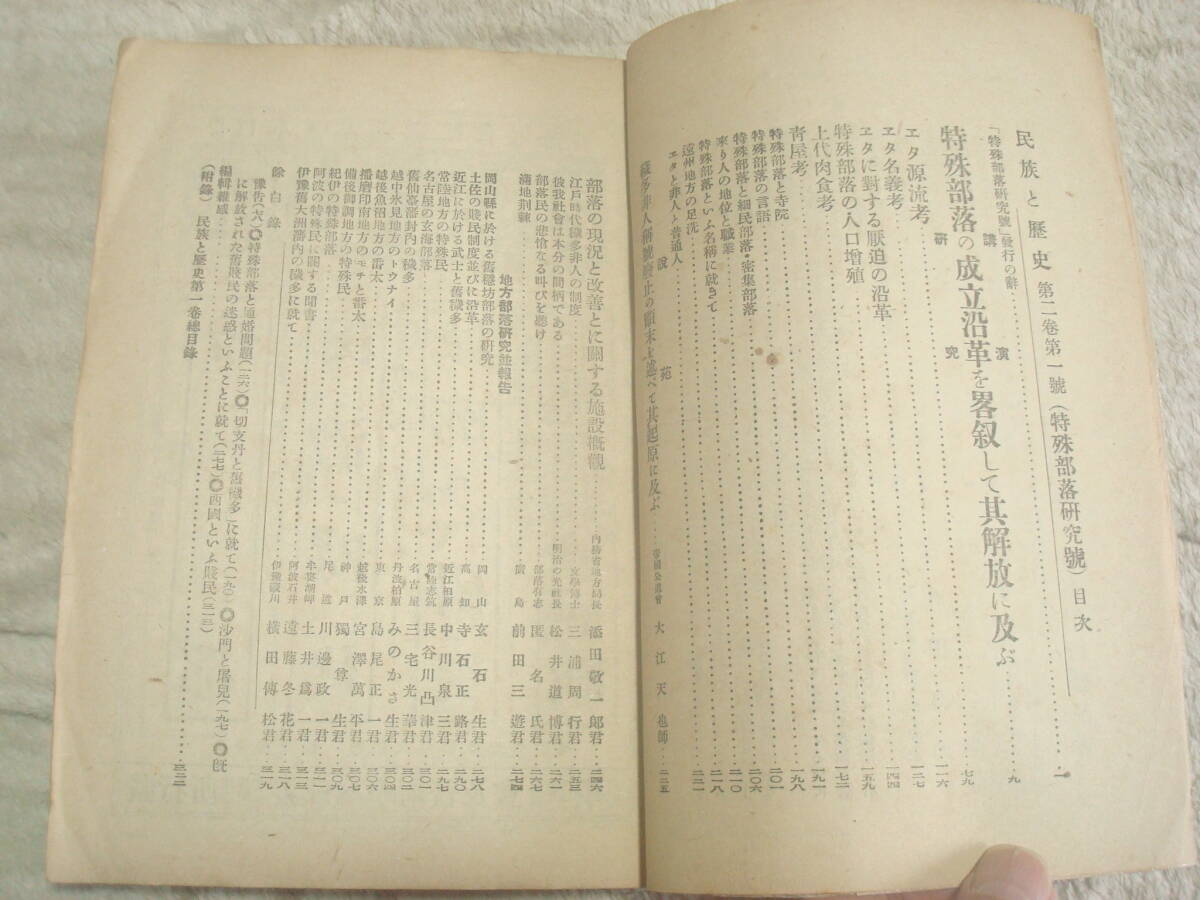 民族と歷史 第二卷第一號(特殊部落研究號)目次
「特殊部落研究號」發行の辭‥‥一
講演
特殊部落の成立沿革を畧叙して其解放に及ぶ‥‥九
研究
ヱタ源流考‥‥七九
ヱタ名義考‥‥一一六
ヱタに對する厭迫の沿革‥‥一二七
特殊部落の人口增殖‥‥一四四
上代肉食考‥‥一五九
靑屋考‥‥一七二
特殊部落と寺院‥‥一九一
特殊部落の言語‥‥一九八
特殊部落と細民部落・密集部落‥‥二〇一
來り人の地位と職業‥‥二〇六
特殊部落といふ名稱に就きて‥‥二一〇
遠州地方の足洗‥‥二一八
ヱタと非人と普通人‥‥二二一
說苑
穢多非人稱號廢止の顚末を述べて其起原に及ぶ‥‥帝國公道會 大江天也師‥‥二二五
部落の現況と改善とに關する施設槪觀‥‥內務省地方局長 添田敬一郎君‥‥二四六
江戶時代穢多非人の制度‥‥文學博士 三浦周行君‥‥二五三
彼我社會は本分の間柄である‥‥明治の光社長 松井道博君‥‥二六一
部落民の悲愴なる叫びを聽け‥‥部落有志 匿名氏‥‥二六七
滿地荆棘‥‥廣島 前田三遊君‥‥二七四
地方部落硏究並報告
岡山縣に於ける舊穩坊部落の硏究‥‥岡山 玄石生君‥‥二七八
土佐の賤民制度並びに沿革‥‥高知 寺石正路君‥‥二九〇
近江に於ける武士と舊穢多‥‥近江柏原 中川泉三君‥‥二九七
常陸地方の特殊民‥‥常陸志筑 長谷川凸津君‥‥三〇一
名古屋の玄海部落‥‥名古屋 三宅光華君‥‥三〇二
舊仙臺藩封內の穢多‥‥丹波柏原 みのかさ生君‥‥三〇四
越中氷見地方のトウナイ‥‥東京 島尾正一君‥‥三〇六
越後魚沼地方の番太‥‥越後水澤 宮澤萬平君‥‥三〇七
播磨印南地方のモチと番太‥‥神戶 獨尊生君‥‥三〇九
備後御調地方の特殊民‥‥尾道 川邊政一君‥‥三一一
紀伊の特殊部落‥‥牟婁潮岬 土井爲一君‥‥三一三
阿波の特殊民に關する聞書‥‥阿波石井 遠藤冬花君‥‥三一八
伊豫舊大洲藩內の穢多に就て‥‥伊豫 橫田傳松君‥‥三一九
餘白錄
豫告(六)◎特殊部落と通婚問題(一二六)◎「切支丹と舊穢多」に就て(一九〇)◎沙門と屠兒(一九七)◎旣
に解放された舊賤民の迷惑といふことに就て(二七七)◎四國といふ賤民(三一三)
編輯雜感‥‥三二二
(附錄)民族と歷史第一卷總目錄